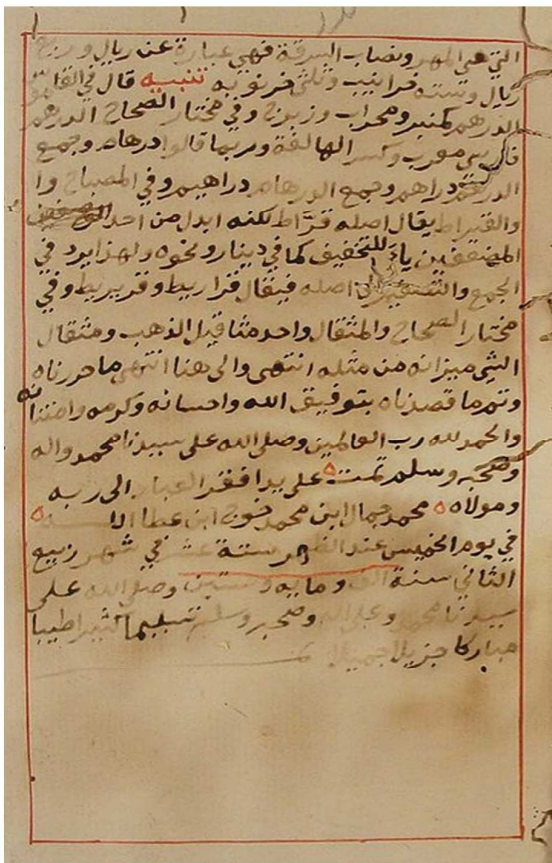 التي هي المهر ونصاب السرقة فهي عبارة عن ريال وربع
ريال وستة فرانيب وثلثي فرنوبه تنبيه قال في القاموس
الدرهم كمنبر ومحراب وزبرج وفي مختار الصحاح الدرهم
فارسي معرب وكسر الها لغة وربما قالوا درهام وجمع
الدرهم دراهم وجمع الدرهام دراهيم وفي المصباح وا
والقيراط يقال اصله قرّاط لكنه ابدل من احد
المضعفين ياء للتخفيف كما في دينار ونحوه ولهذا يرد في
الجمع والتصغير الى اصله فيقال قراريط وقريريط وفي
مختار الصحاح والمثقال واحد مثاقيل الذهب ومثقال
الشي ميزانه من مثله انتهى والى هنا انتهى ما حررناه
وتم ما قصدناه بتوفيق الله واحسانه وكرمه وامتنانه
والحمد لله رب العالمين وصلى الله على سيدنا محمد واله
وصحبه وسلم تمت على يد افقر العباد الى ربه
ومولاه محمد جمال ابن محمد ابن عطا الله
في يوم الخميس عند الظهر ستة عشر في شهر ربيع
الثاني سنة الف ومايه وستين وصلى الله على
سيدنا محمد وعلى اله وصحبه وسلم تسليما كثيرا طيبا
مباركا جزيلا جميلا